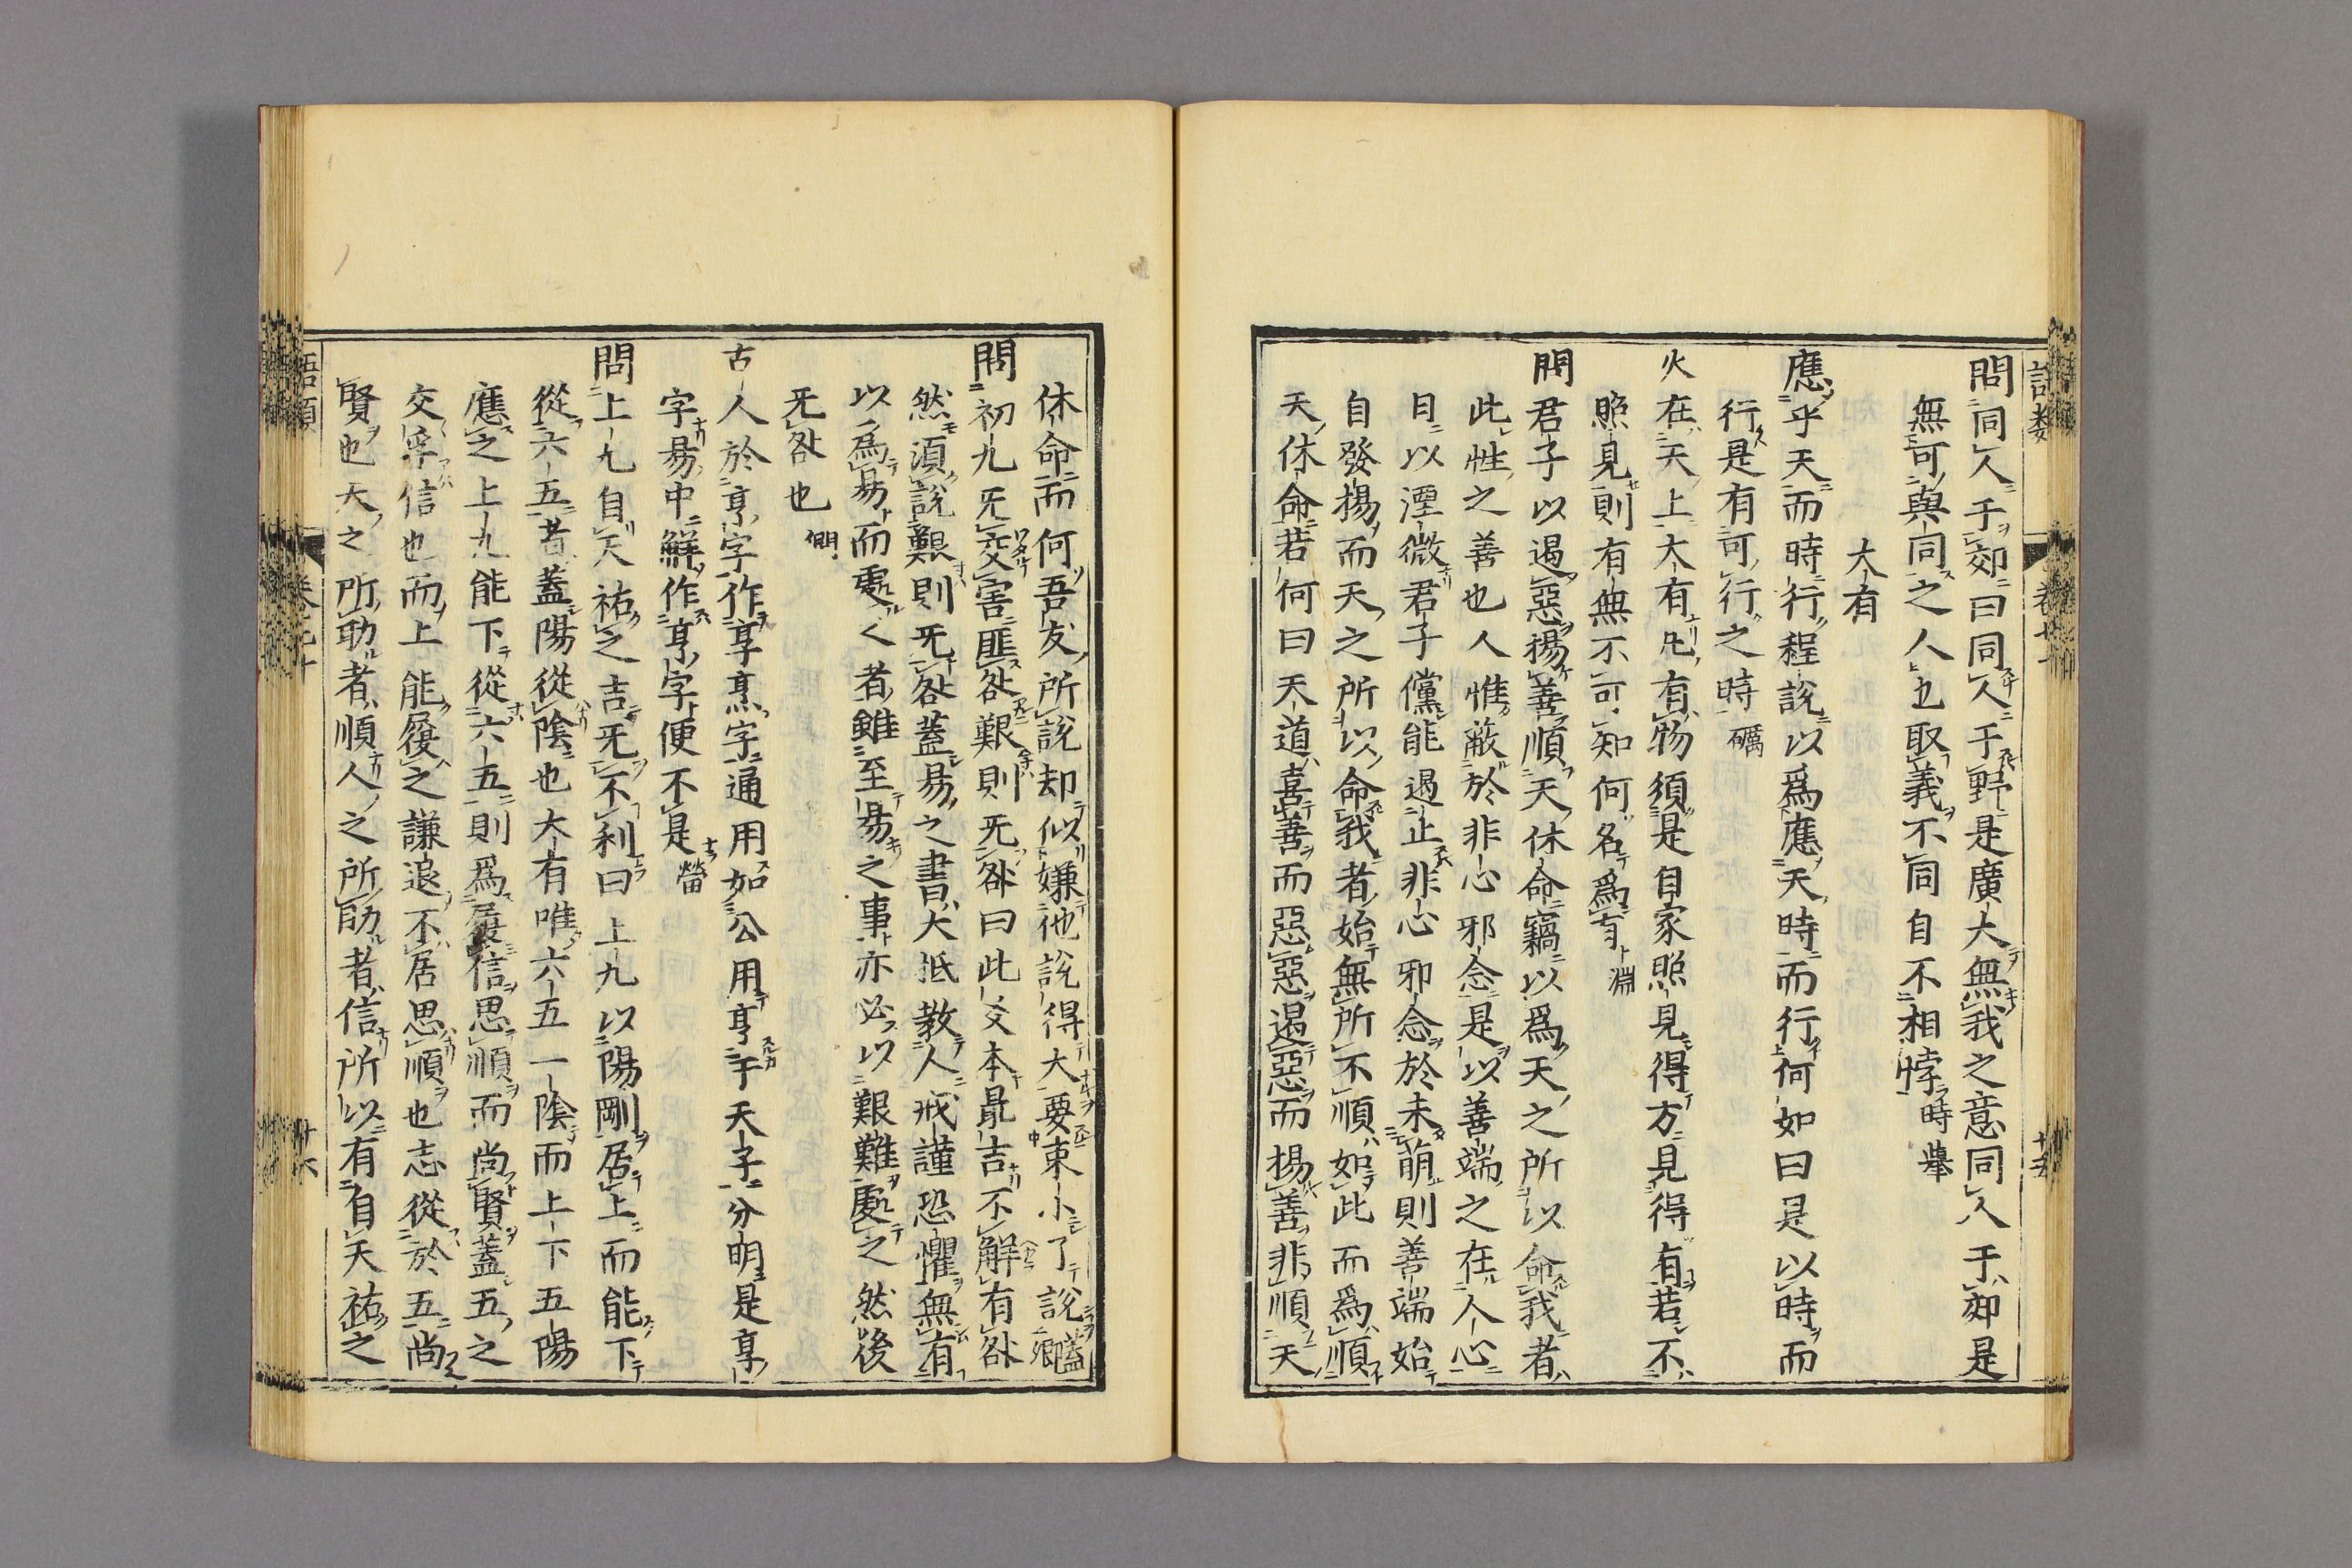 問同人于郊曰同人于野是廣大無我之意同人于郊是
無可與同之人也取義不同自不相悖時舉
大有
應乎天而時行程說以爲應天時而行何如曰是以時而
行是有可行之時礪
火在天上大有凡有物須是自家照見得方見得有若不
照見則有無不可知何名爲有淵
問君子以遏惡揚善順天休命竊以爲天之所以命我者
此性之善也人惟蔽於非心邪念是以善端之在人心
日以湮微君子儻能遏止非心邪念於未萌則善端始
自發揚而天之所以命我者始無所不順如此而爲順
天休命若何曰天道喜善而惡惡遏惡而揚善非順天
休命而何吾友所說却似嫌他說得大要束小了說蓋卿
問初九旡交害匪咎艱則旡咎曰此爻本最吉不解有咎
然須說艱則旡咎蓋易之書大抵教人戒謹恐懼無有
以爲易而處之者雖至易之事亦必以艱難處之然後
旡咎也僩
古人於亨字作享烹字通用如公用亨于天子分明是享
字易中鮮作亨字便不是㽦
問上九自天祐之吉旡不利曰上九以陽剛居上而能下
從六五者蓋陽從陰也大有唯六五一陰而上下五陽
應之上九能下從六五則爲履信思順而尚賢蓋五之
交孚信也而上能履之謙退不居思順也志從於五尚
賢也天之所助者順人之所助者信所以有自天祐之